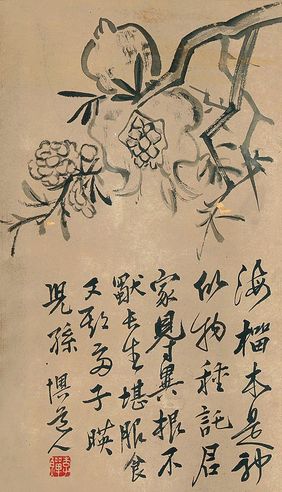 海榴本是神
仙物種託君
家見異根不
厭長生堪服食
又取多子暎
兒孫 道人